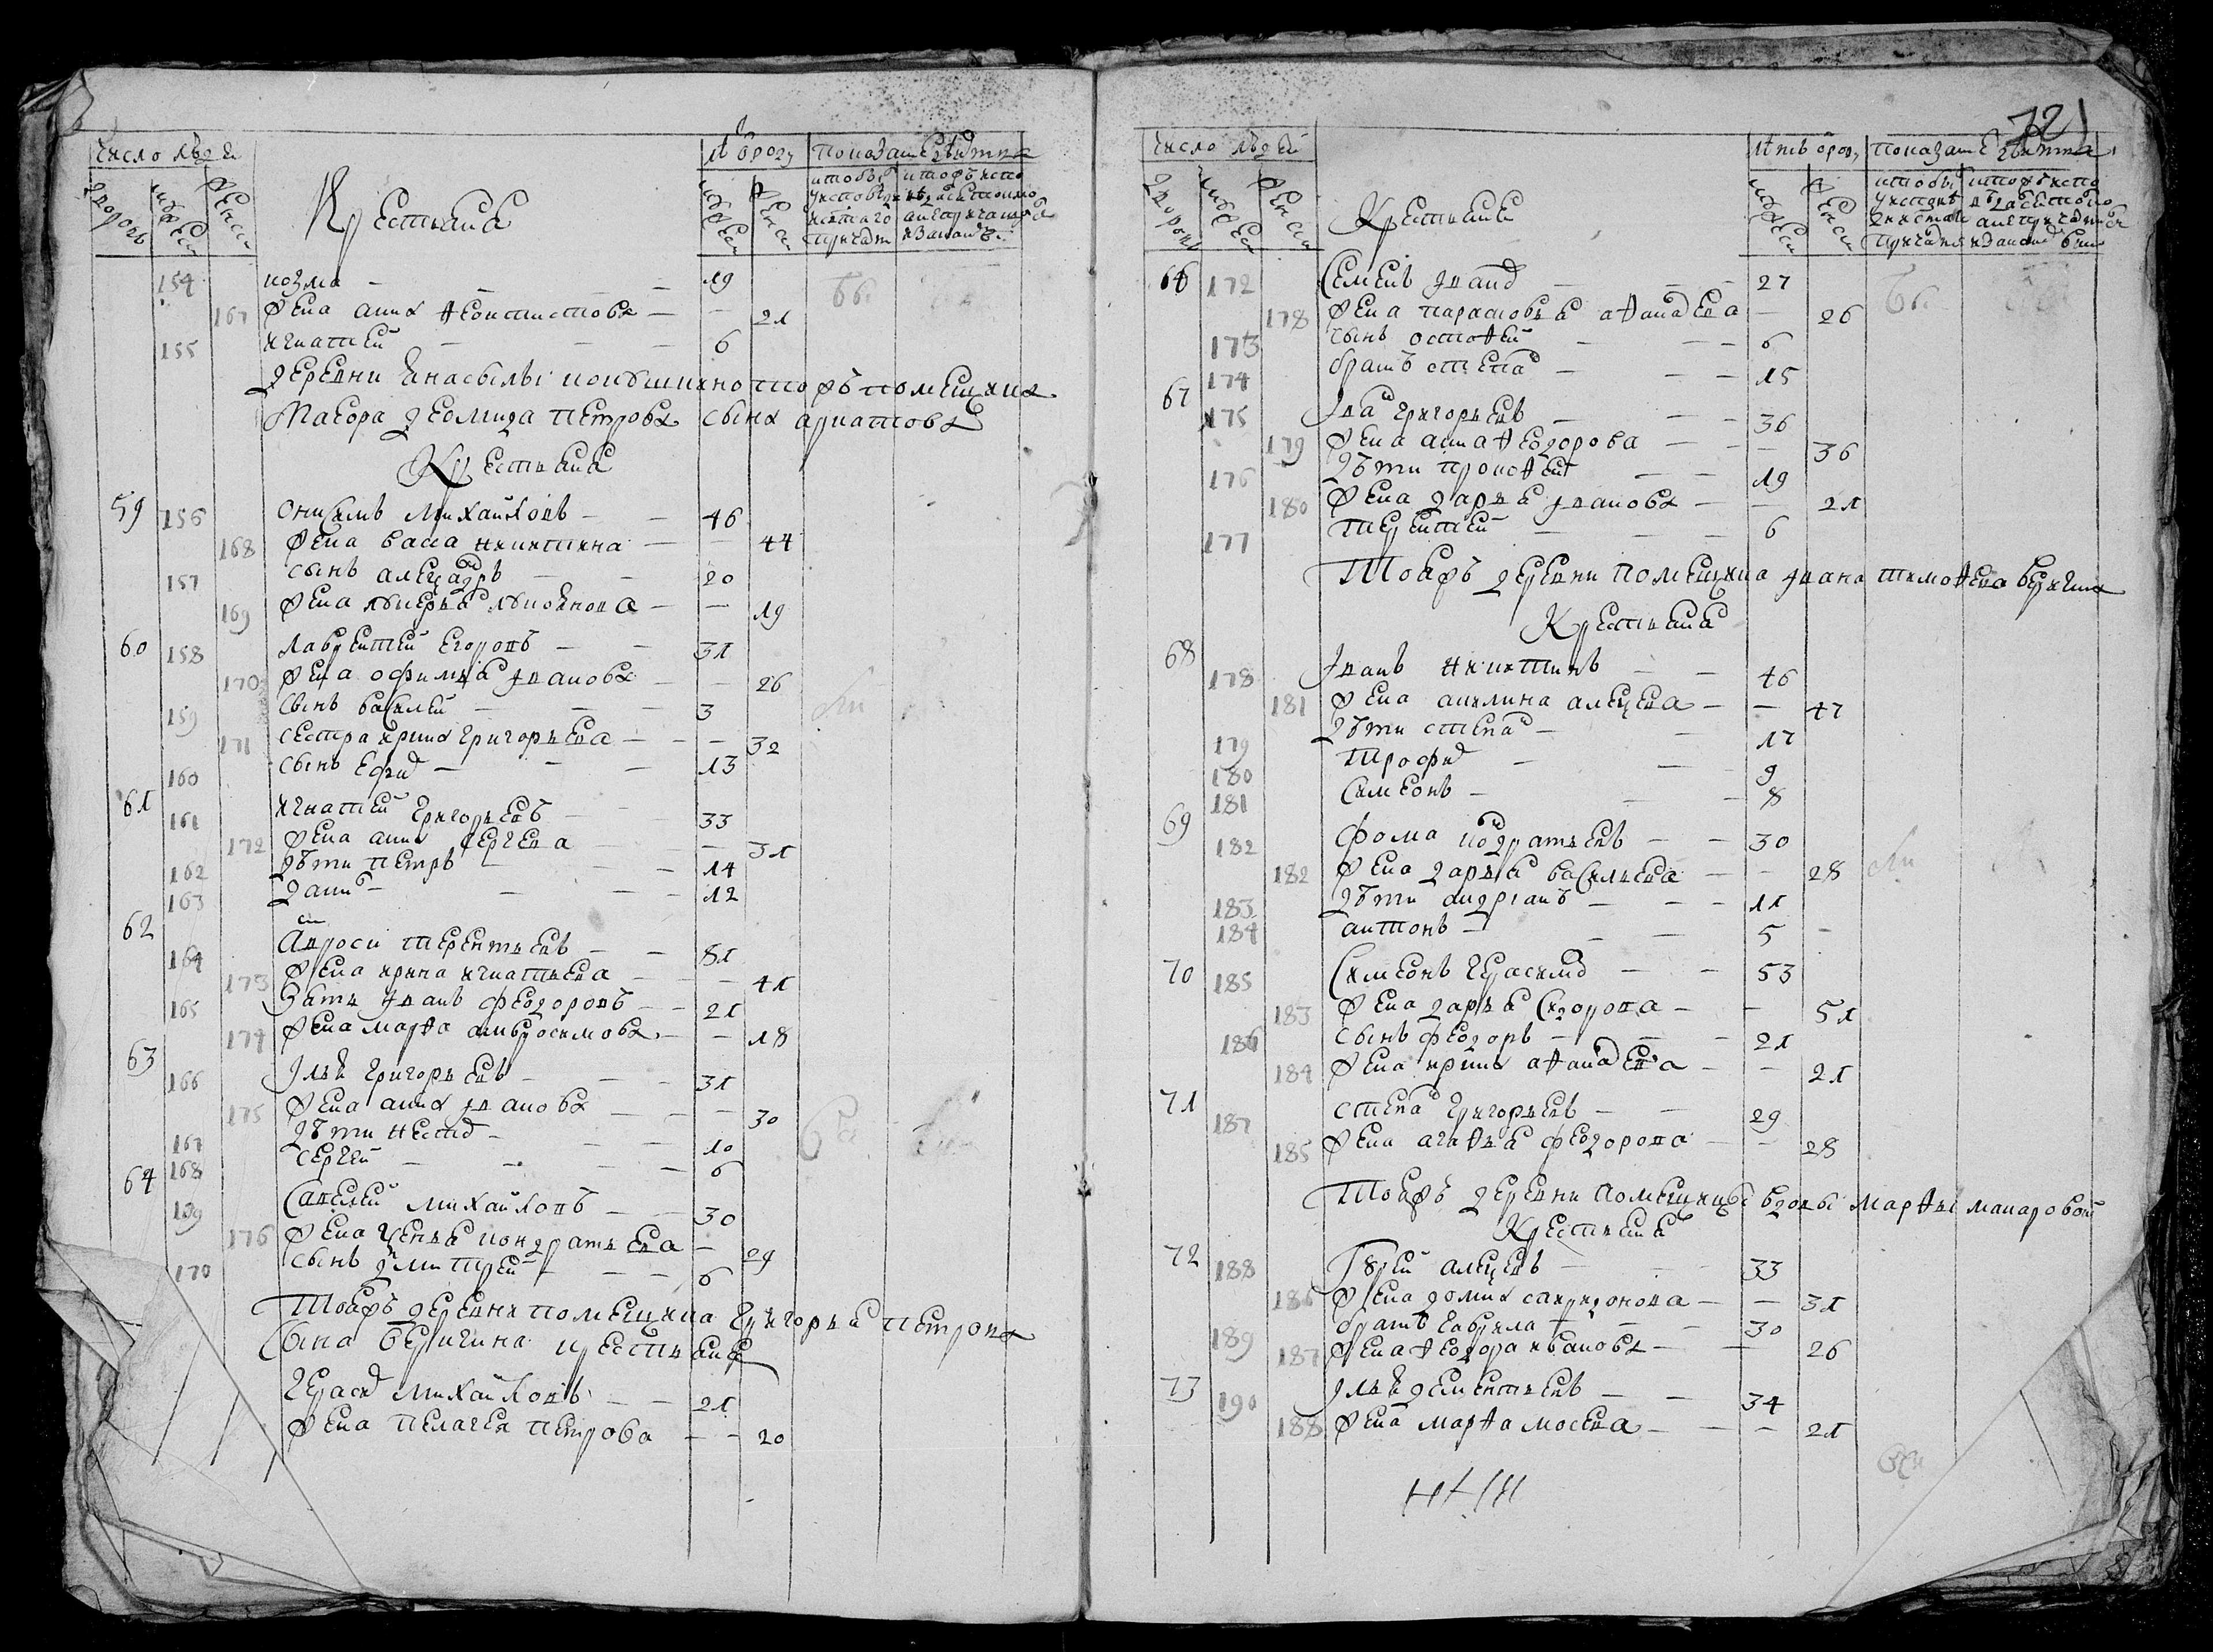 число людей
дворовъ
мужеска
женска
Крестьяне
лѣт от роду
мужеска
женска
показание
154 козма 19
167 жена анна феоктистова 21
155 игнатей 6
деревни
помещика
маиора деомида петрова сына арпатова
Крестьяне
59 156 Онисимъ михайловъ 46
168 жена васса никитина 44
157 сынъ александръ 20
169 жена лукерья лукоянова 19
60 158 лаврентей егоровъ 31
170 жена офимья иванова 26
159 сынъ василей 3
171 сестра ирина григорьева 32
160 сынъ ефимъ 13
61 161 игнатей григорьевъ 33
172 жена анна сергеева 31
162 дѣти петръ 14
163 данило 12
62 164 Амросим терентьевъ 81
173 жена ирина игнатьева 41
165 зять иванъ федоровъ 21
174 жена марфа амбросимова 18
63 166 илья григорьевъ 31
175 жена анна иванова 30
167 дѣти нестер 10
168 сергей 6
64 169 Савелей михайловъ 30
176 жена ксенья кондратьева 29
170 сынъ дмитрей 6
Тоеяжъ деревни помещика григорья петрова
сына беричина крестьяне
герасимъ михайловъ 21
жена пелагея петрова 20
721
число людей
дворовъ
мужеска
женска
Крестьяне
лѣтъ от роду
мужеска
женска
показание
66 172 Семенъ иванов 27
178 жена парасковья афанасьева 26
173 сынъ остафей 6
174 братъ степанъ 15
67 175 иван григорьевъ 36
179 жена анна феодорова 36
176 дѣти прокофей 19
180 жена дарья иванова 21
177 терентей 6
Тоеяжъ деревни помещика ивана тимофеева беричина
Крестьяне
68 178 иванъ никитинъ 46
181 жена акилина алексеева 47
179 дѣти степанъ 17
180 трофимъ 9
181 Симеонъ 8
69 182 фома кондратьевъ 30
182 жена дарья васильева 28
183 дѣти андреянъ 11
184 антонъ 5
70 185 Симеонъ герасимовъ 53
183 жена дарья сидорова 51
186 сынъ федоръ 21
184 жена ирина афанасьева 21
71 187 степанъ григорьевъ 29
185 жена агафья федорова 28
Тоеяжъ деревни помещицы вдовы марфы макаровой
Крестьяне
72 188 Гурей алексеевъ 33
186 жена домна спиридонова 31
189 братъ гаврила 30
187 жена феодора иванова 26
73 190 илья дементьевъ 34
188 жена марфа мосеева 21